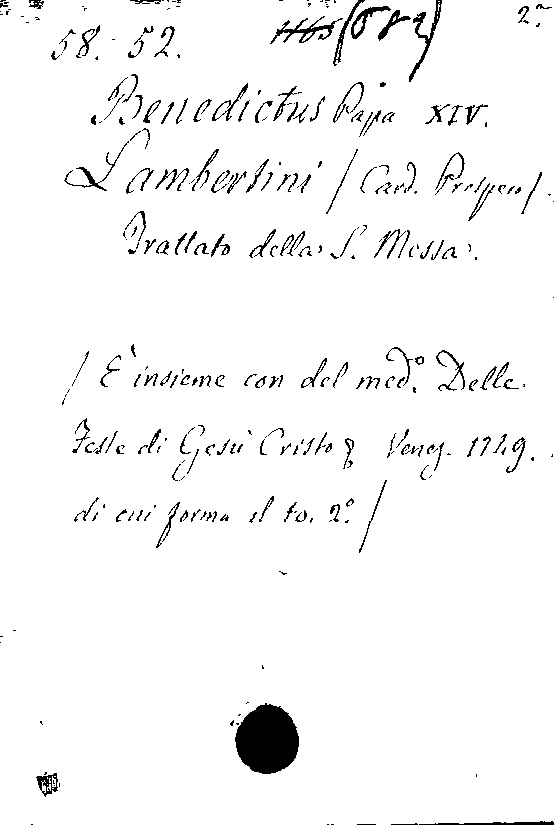 58. 52. 1165 (682) 2º
Benedictus Papa XIV.
Lambertini / Card. Prospero /.
Trattato della S. Messa.
/ È insieme con del medº. Delle
Feste di Gesù Cristo & Venez. 1749.
di cui forma il to. 2º. /